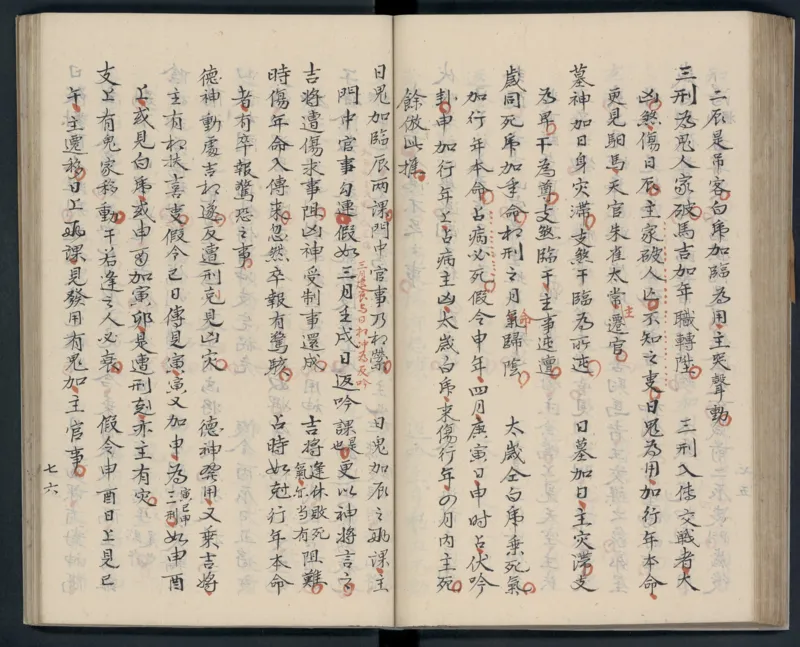 二辰是吊客白虎加臨為用主哭聲動
三刑為鬼人家破馬吉加年職轉陞　三刑入傳交戰者大
凶煞傷日辰主家破人亡不知之吏日鬼為用加行年本命
更見駟馬天官朱雀太常遷官
主
墓神加日身灾滯支煞干臨為所迍　日墓加日主灾滯支
為卑干為尊支煞臨干主事迍邅
歲同死虎加季命相刑之月氣歸陰　太歲全白虎乗死氣
命
加行年本命占病必死假令申年四月庚寅日申時占伏吟
卦申加行年上占病主凶太歲白虎来傷行年四月内主死
餘倣此推
日鬼加臨辰兩課門中官事乃相縈　日鬼加辰之兩課主
門中官事勾連假如三月壬戌日返吟課是也更以神將言之
吉將遭傷求事阻凶神受制事還成　吉將逢休敗死氣亦當有阻難
時傷年命入傳来忽然卒報有驚駭　占時如尅行年本命
者有卒報驚恐之事
德神動處吉相逢反遭刑尅見凶灾　德神發用又乗吉將
主有相扶喜事假令己日傳見寅寅又加申為三刑寅巳申如申酉
上或見白虎或申酉加寅卯是遭刑剋亦主有灾
支上有鬼家移動干若逢之人必衰　假令申酉日上見巳
午主遷移日上兩課見發用有鬼加主官事
七六